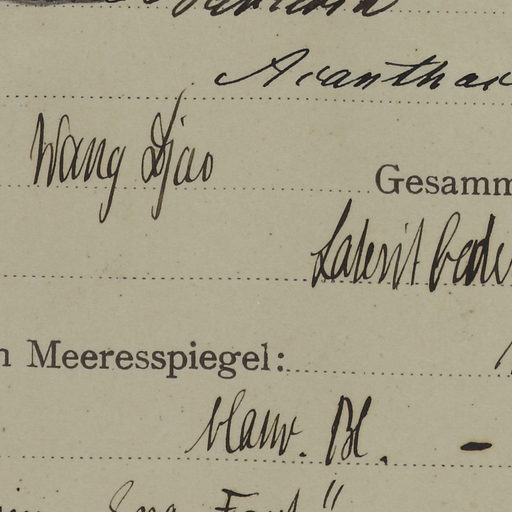 Acanthac
Wang Djao Gesamm
Laterit bode
n Meeresspiegel:
blauv. Bl. -